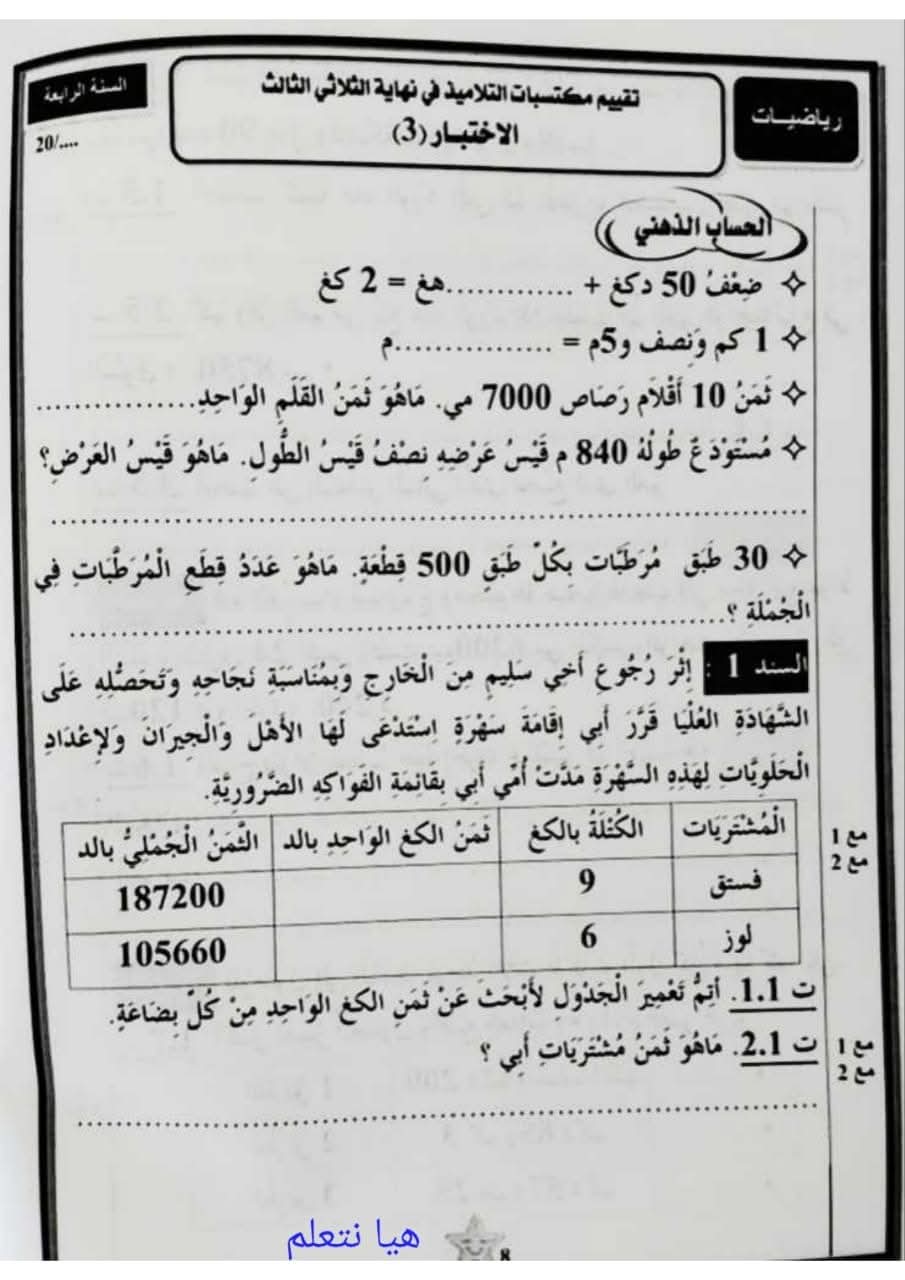 السنة الرابعة
20/....
تقييم مكتسبات التلاميذ في نهاية الثلاثي الثالث
الاختبار (3)
رياضيات
الحساب الذهني
✧ ضِعْفُ 50 دكغ + .............هغ = 2 كغ
✧ 1 كم وَنصف و5م = ................م
✧ ثَمَنُ 10 أَقْلَام رَصَاص 7000 مي. مَاهُوَ ثَمَنُ القَلَمِ الوَاحِدِ................
✧ مُسْتَوْدَعٌ طُولُهُ 840 م قَيْسُ عَرْضِهِ نِصْفُ قَيْسُ الطُّولِ. مَاهُوَ قَيْسُ العَرْضِ؟
................................................................
✧ 30 طَبَق مُرَطَّبَات بِكُلِّ طَبَقٍ 500 قِطْعَةٍ. مَاهُوَ عَدَدُ قِطَعِ الْمُرَطَّبَاتِ فِي
الْجُمْلَةِ ؟................................................................
السند 1 : إِثْرَ رُجُوعِ أَخِي سَلِيمٍ مِنَ الْخَارِجِ وَبِمُنَاسَبَةِ نَجَاحِهِ وَتَحَصُّلِهِ عَلَى
الشَّهَادَةِ العُلْيَا قَرَّرَ أَبِي إِقَامَةَ سَهْرَةٍ اِسْتَدْعَى لَهَا الأَهْلَ وَالْجِيرَانَ وَلِإِعْدَادِ
الْحَلَوِيَّاتِ لِهَذِهِ السَّهْرَةِ مَدَّتْ أُمِّي أَبِي بِقَائِمَةِ الفَوَاكِهِ الضَّرُورِيَّةِ.
الْمُشْتَرَيَات الكُتْلَةُ بالكغ ثَمَنُ الكغ الوَاحِدِ بالد الثَّمَنُ الْجُمْلِيُّ بالد
فستق 9 187200
لوز 6 105660
مع 1
مع 2
ت 1.1. أُتِمُّ تَعْمِيرَ الْجَدْوَلِ لأَبْحَثَ عَنْ ثَمَنِ الكغ الوَاحِدِ مِنْ كُلِّ بِضَاعَةٍ.
ت 2.1. مَاهُوَ ثَمَنُ مُشْتَرَيَاتِ أَبِي ؟
مع 1
مع 2
................................................................
هيا نتعلم
8